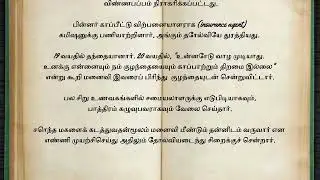 விண்ணப்பம் நிராகரிக்கப்பட்டது.
பின்னர் காப்பீட்டு விற்பனையாளராக (insurance agent)
கமிஷனுக்கு பணியாற்றினார், அங்கும் தோல்வியே துரத்தியது.
19 வயதில் தந்தையானார். 20 வயதில், "உன்னோடு வாழ முடியாது,
உனக்கு என்னையும் நம் குழந்தையையும் காப்பாற்றும் திறமை இல்லை"
என்று கூறி மனைவி இவரைப் பிரிந்து குழந்தையுடன் சென்றுவிட்டார்.
பல சிறு உணவகங்களில் சமையலாளருக்கு எடுபிடியாகவும்,
பாத்திரம் கழுவுபவராகவும் வேலை செய்தார்.
சரெந்த மகளைக் கடத்துவதன்மூலம் மனைவி மீண்டும் தன்னிடம் வருவார் என
எண்ணி முயற்சிசெய்து அதிலும் தோல்வியடைந்து சிறைக்குச் சென்றார்.